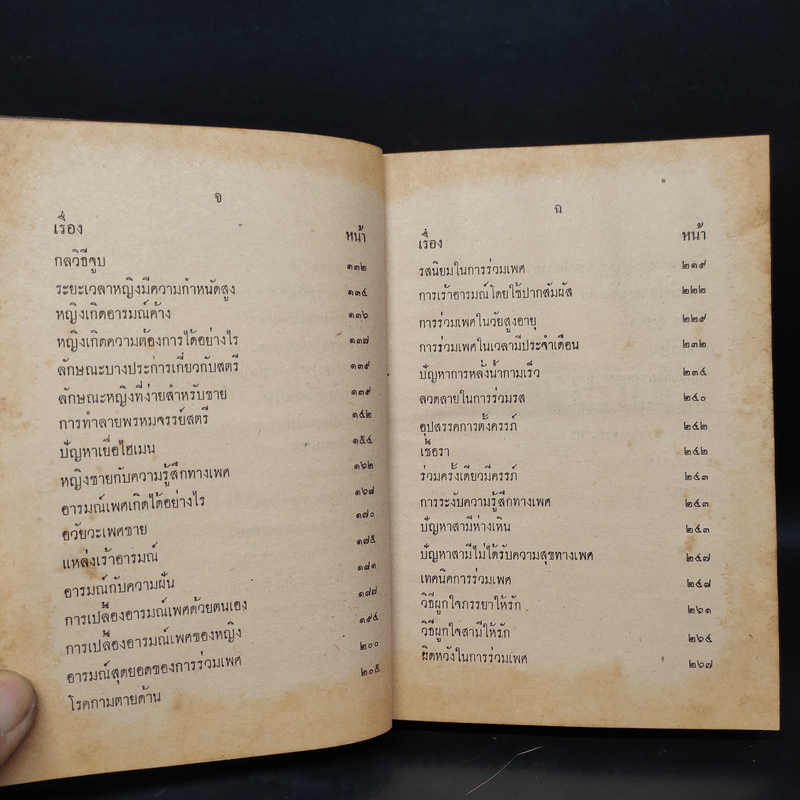 จ
เรื่อง หน้า
กลวิธีจูบ ๑๓๒
ระยะเวลาหญิงมีความกำหนัดสูง ๑๓๔
หญิงเกิดอารมณ์ค้าง ๑๓๖
หญิงเกิดความต้องการได้อย่างไร ๑๓๗
ลักษณะบางประการเกี่ยวกับสตรี ๑๓๙
ลักษณะหญิงที่ง่ายสำหรับชาย ๑๓๙
การทำลายพรหมจรรย์สตรี ๑๔๒
ปัญหาเยื่อไฮเมน ๑๕๔
หญิงชายกับความรู้สึกทางเพศ ๑๖๒
อารมณ์เพศเกิดได้อย่างไร ๑๖๘
อวัยวะเพศชาย ๑๗๐
แหล่งเร้าอารมณ์ ๑๗๕
อารมณ์กับความฝัน ๑๘๑
การเปลื้องอารมณ์เพศด้วยตนเอง ๑๘๗
การเปลื้องอารมณ์เพศของหญิง ๑๙๔
อารมณ์สุดยอดของการร่วมเพศ ๒๐๐
โรคกามตายด้าน ๒๐๕
ฉ
เรื่อง หน้า
รสนิยมในการร่วมเพศ ๒๑๙
การเร้าอารมณ์โดยใช้ปากสัมผัส ๒๒๒
การร่วมเพศในวัยสูงอายุ ๒๒๙
การร่วมเพศในเวลามีประจำเดือน ๒๓๒
ปัญหาการหลั่งน้ำกามเร็ว ๒๓๔
ลวดลายในการร่วมรส ๒๔๐
อุปสรรคการตั้งครรภ์ ๒๔๒
เชื้อรา ๒๔๒
ร่วมครั้งเดียวมีครรภ์ ๒๔๓
การระงับความรู้สึกทางเพศ ๒๔๓
ปัญหาสามีห่างเหิน ๒๔๓
ปัญหาสามีไม่ได้รับความสุขทางเพศ ๒๔๗
เทคนิคการร่วมเพศ ๒๔๘
วิธีผูกใจภรรยาให้รัก ๒๖๑
วิธีผูกใจสามีให้รัก ๒๖๔
ผิดหวังในการร่วมเพศ ๒๖๗